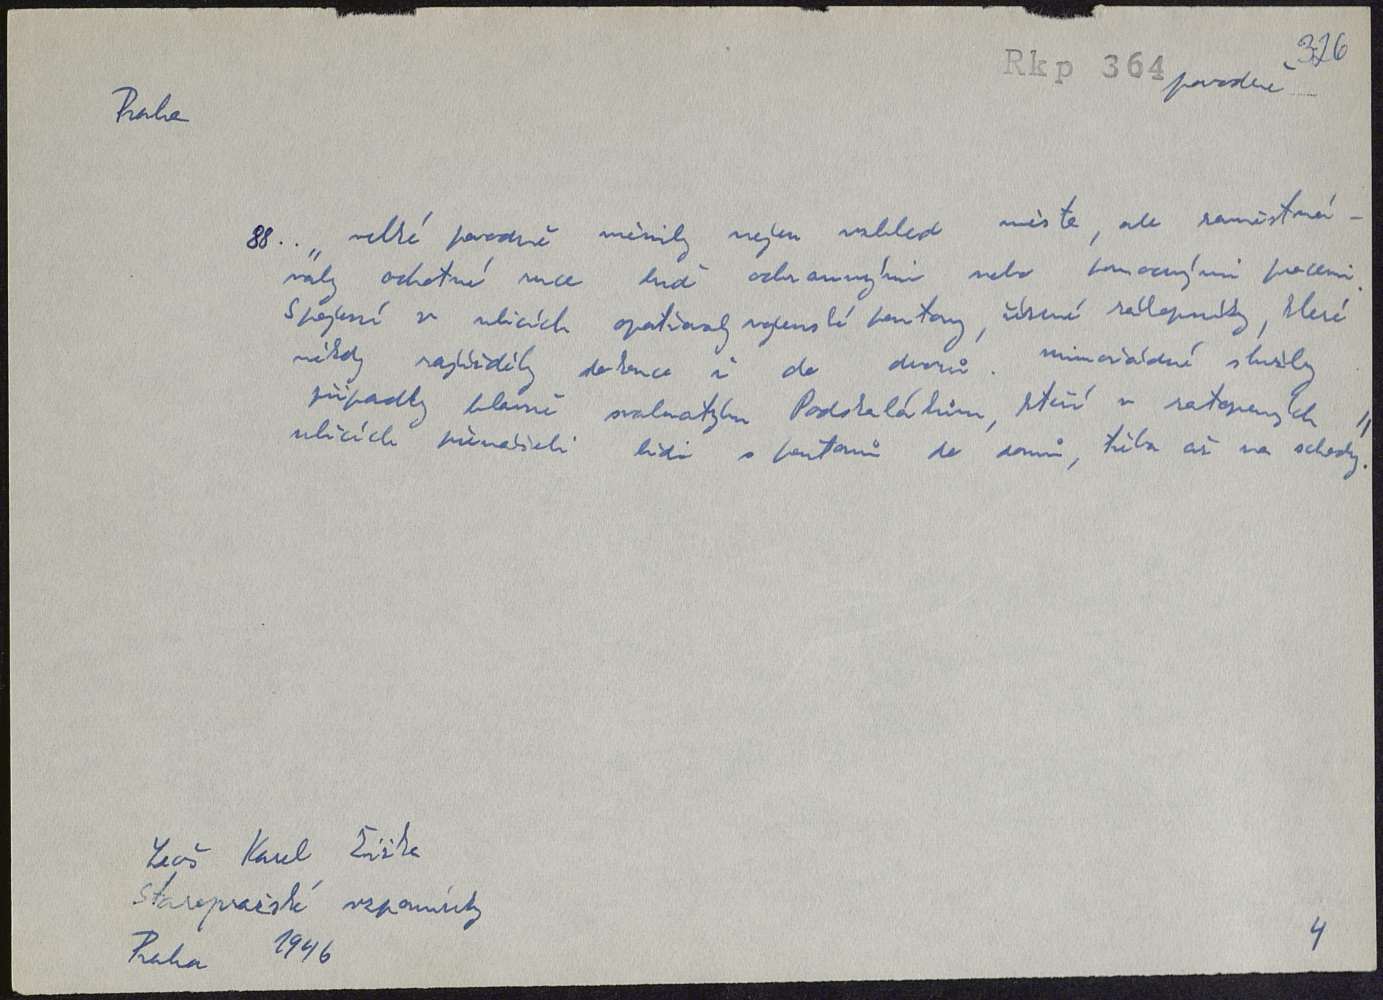 376
Rkp 364
povodně
Praha
88.. „ velké povodně měnily nejen vzhled města, ale zaměstná-
valy ochotné ruce lidí ochrannými nebo pomocnými pracemi.
Spojení v ulicích opatřovaly vojenské pontony, řízené zákopníky, které
někdy zajížděly dokonce i do dvorů. mimořádné služby
připadly hlavně svalnatým Podskalákům, kteří v zatopených
ulicích přenášeli lidi s pontonů do domů, třeba až na schody."
Leoš Karel Žižka
Staropražské vzpomínky
Praha 1946
4